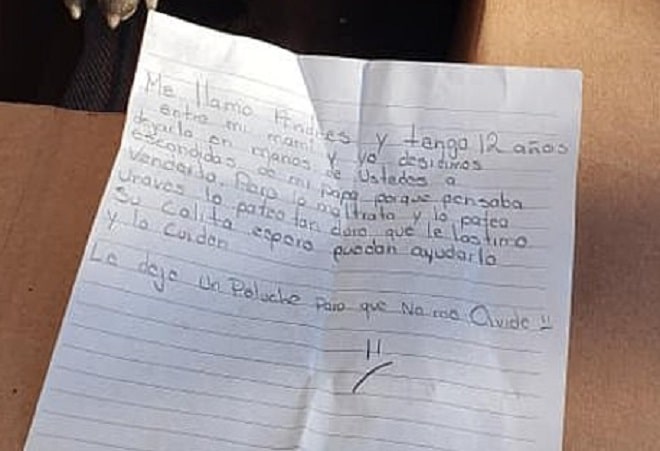 Me llamo Andres y tengo 12 años
entre mi mami y yo desidimos
dejarla en manos de Ustedes a
escondidas de mi papa porque pensaba
Venderlo. Pero lo maltrata y lo patea
unaves lo pateo tan duro que le lastimo
Su Colita espero puedan ayudarlo
y lo Cuiden
Le dejo un Peluche Para que No me Olvide